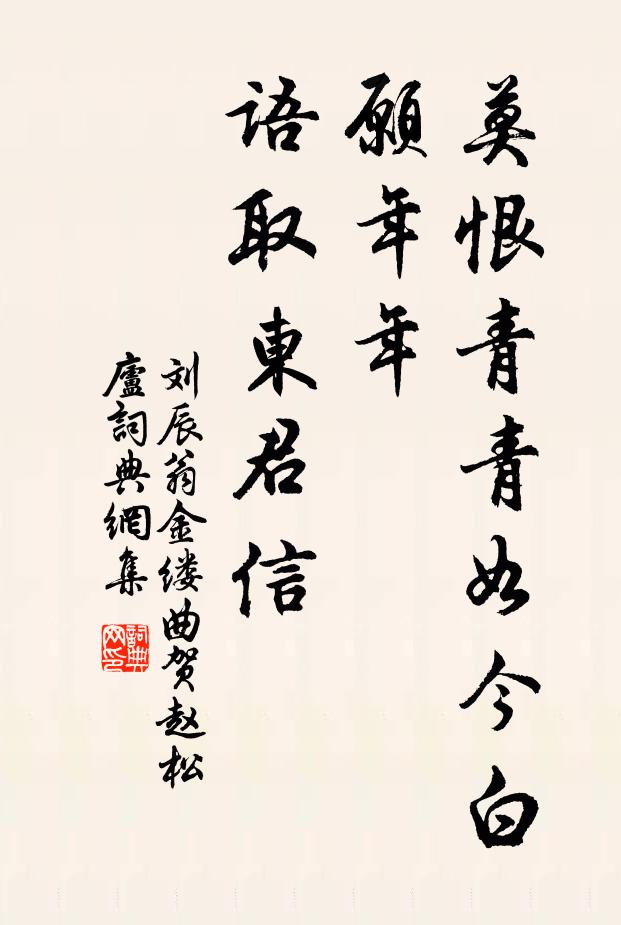 莫恨青青如今白
願年年
語取東君信
刘辰翁金缕曲贺赵松
廬詞典網集
詞典
网印